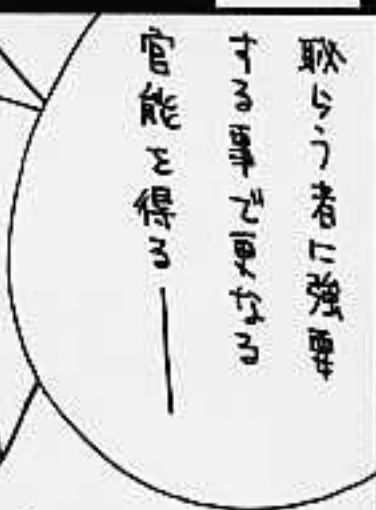 恥らう者に強要
する事で更なる
官能を得る――